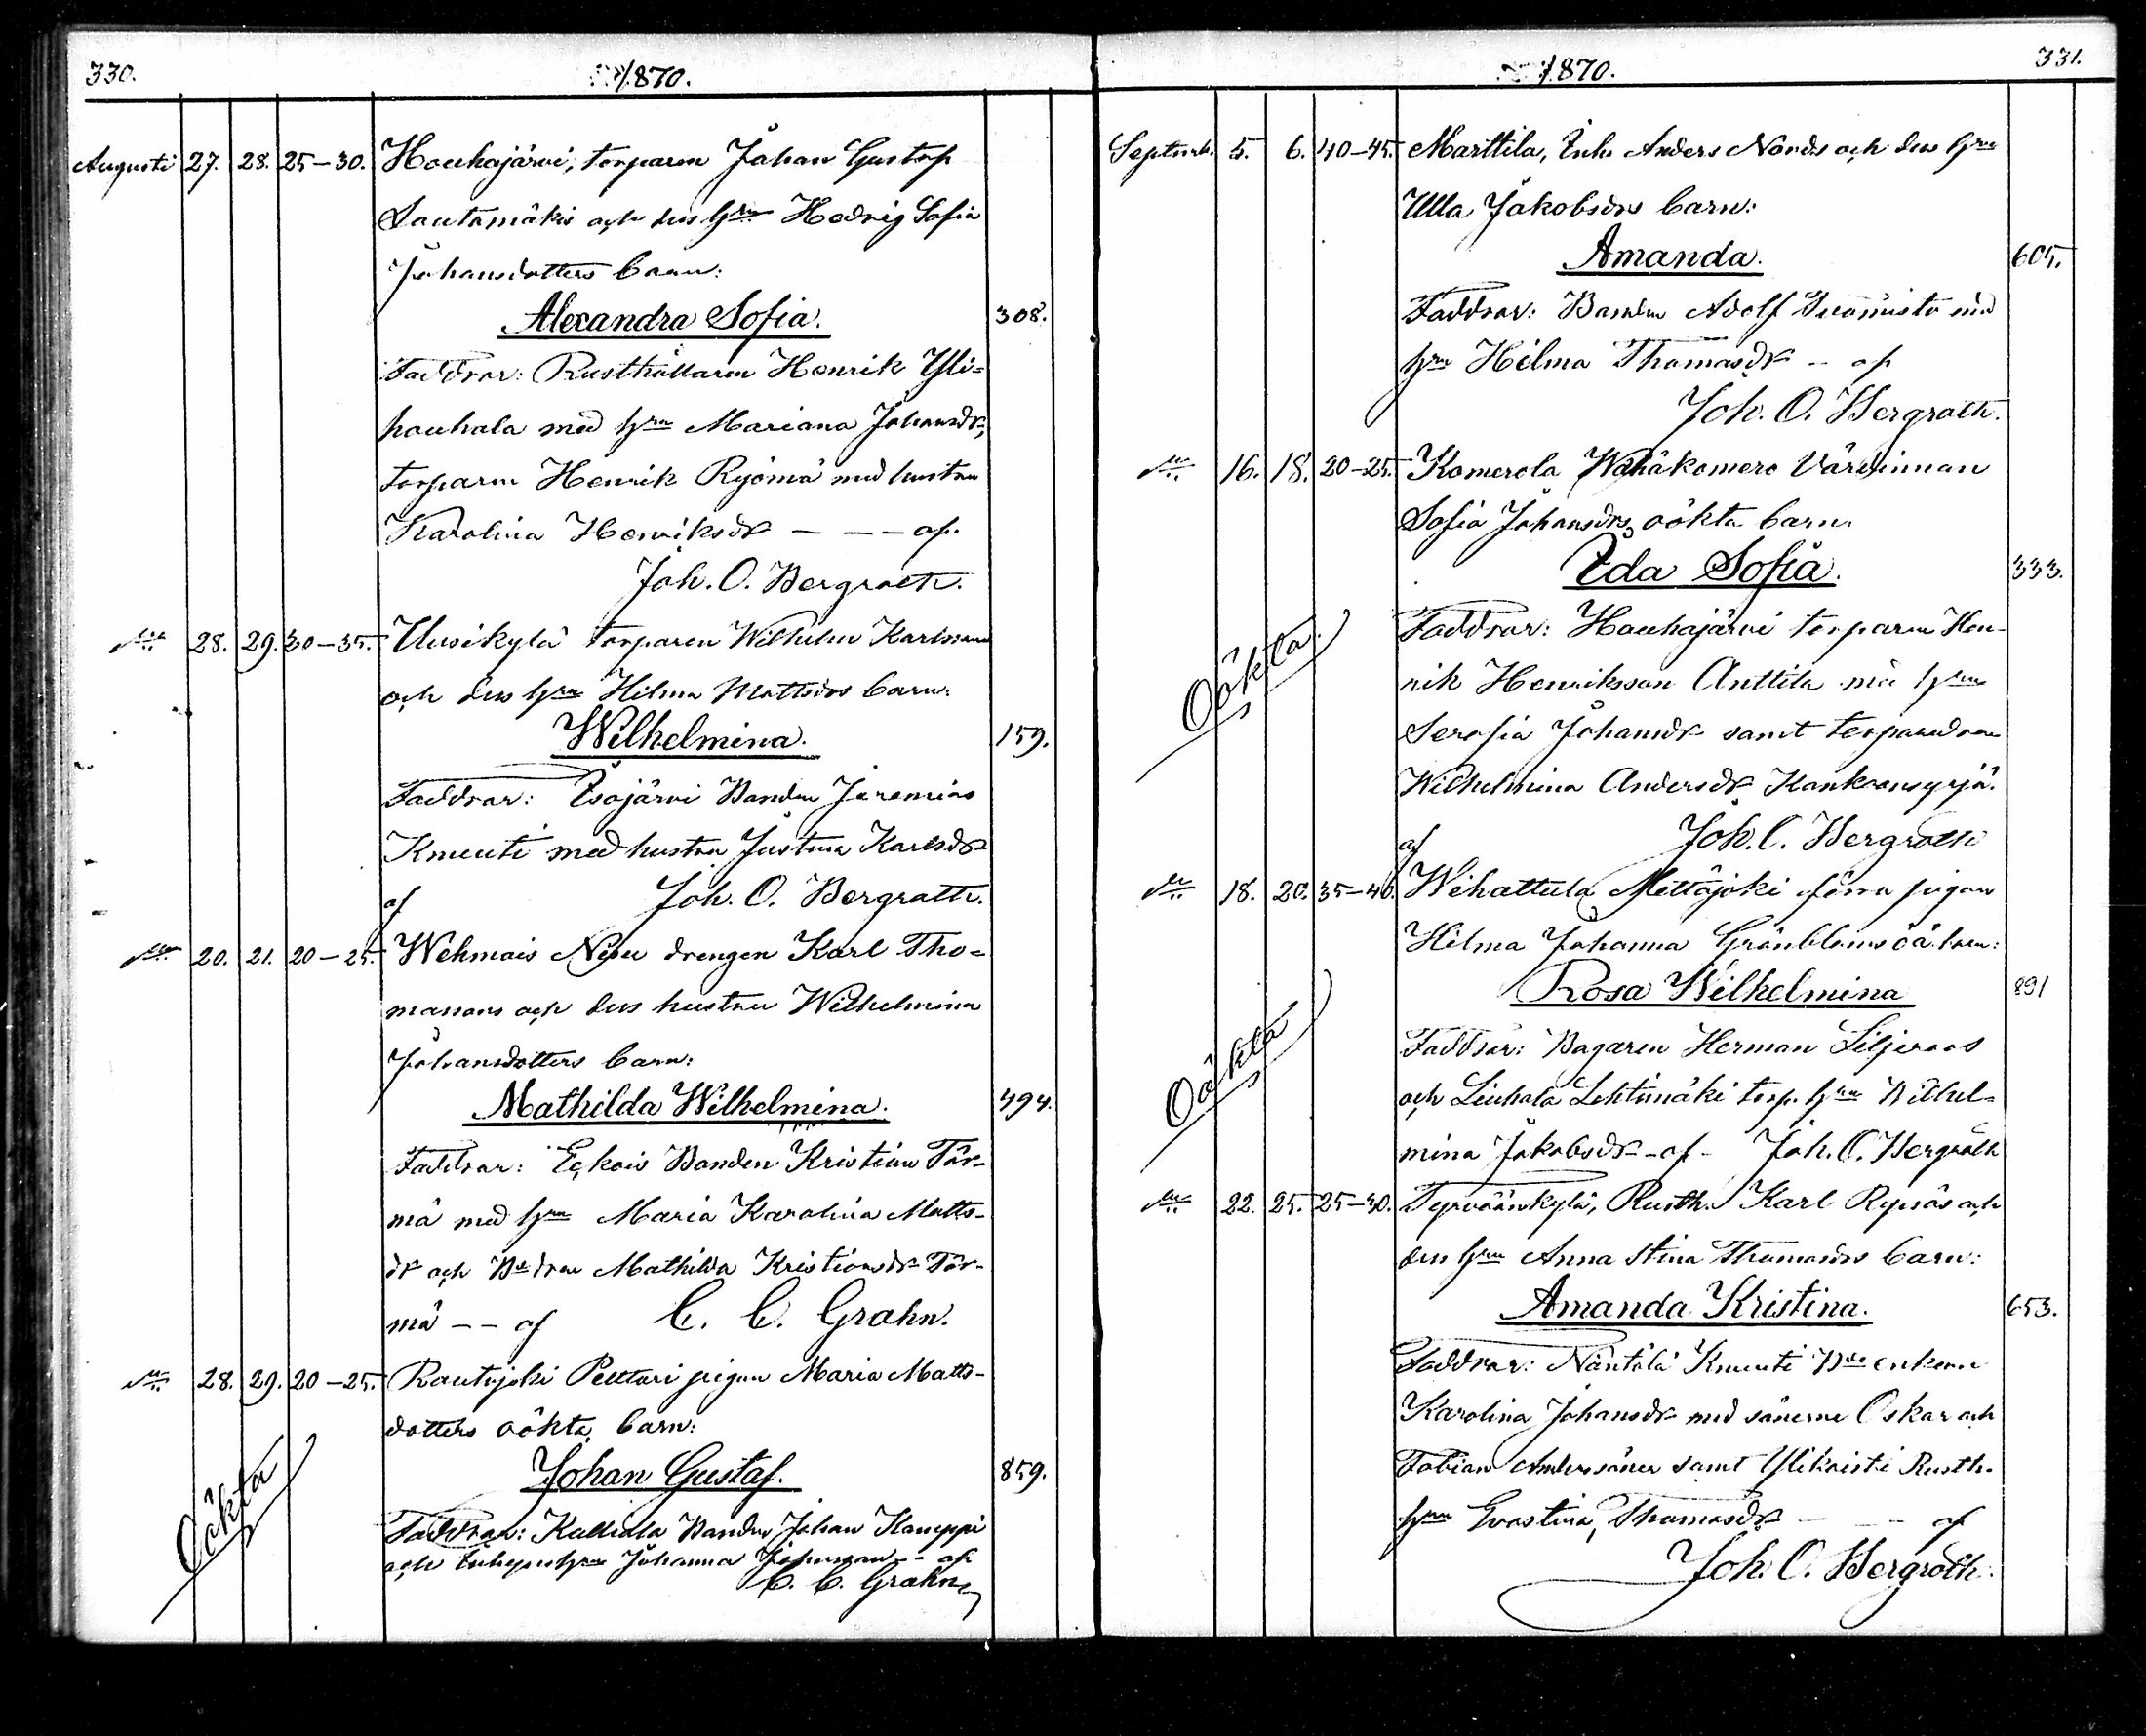 330.
1870.
Augusti 27. 28. 25-30. Houhajärvi, torparen Johan Gustaf
Sautamäkis och dess Hru Hedvig Sofia
Johansdotters barn:
Alexandra Sofia. 308.
Faddrar: Rusthållaren Henrik Yli=
houhala med Hru Mariana Johansdr,
torparen Henrik Ryömä med hustru
Karolina Henriksdr - - - af.
Joh. O. Bergroth.
28. 29. 30-35. Uusikylä torparen Wilhelm Karlssons
och dess Hru Hilma Mattsdrs barn:
Wilhelmina. 159.
Faddrar: Isojärvi Bonden Jeremias
Knuuti med hustru Justina Karlsdr
af Joh. O. Bergroth.
20. 21. 20-25. Wehmais drengen Karl Tho=
massons och dess hustru Wilhelmina
Johansdotters barn:
Mathilda Wilhelmina. 494.
Faddrar: Bonden Kristian Tör-
mä med Hru Maria Karolina Matts-
dr och Mathilda Kristiansdr Tör-
mä -- af C. C. Grahn.
28. 29. 20-25. Rautajoki Pelttari pigan Maria Matts-
dotters oökta barn:
Johan Gustaf. 859.
Oökta
Faddrar: Kalliala Bonden Johan Knuppi
och Hru Johanna -- af
C. C. Grahn
331.
1870.
Septemb. 5. 6. 40-45. Marttila, Inh. Anders Nords och dess Hru
Ulla Jakobsdrs barn:
Amanda. 605.
Faddrar: Bonden Adolf med
Hru Hilma Thomasdr - af
Joh. O. Bergroth.
16. 18. 20-25. Komerola Wähäkomero Värdinnan
Sofia Johansdrs oökta barn
Ida Sofia. 333.
Oökta.
Faddrar: Houhajärvi torparen Hen-
rik Henriksson Anttila må Hru
Serafia Johansdr samt
Wilhelmina Andersdr Kankaansyrjä.
af Joh. O. Bergroth
18. 20. 35-40. Wihattula Mettäjoki förra pigan
Hilma Johanna Grönbloms oä barn:
Rosa Wilhelmina 891
Oökta
Faddrar: Bagaren Herman Liljeroos
och Liuhala Lehtimäki torp. Hru Wilhel=
mina Jakobsdr - af - Joh. O. Bergroth
22. 25. 25-30. Tyrväänkylä, Rusth. Karl Rynös och
dess Hru Anna Stina Thomasdrs barn:
Amanda Kristina. 653.
Faddrar: Näntölä Knuuti enkan
Karolina Johansdr med sönerne Oskar och
Fabian Anderssöner samt Ylikaisti Rusth.
Hru Evastina Thomasdr - - af
Joh. O. Bergroth.